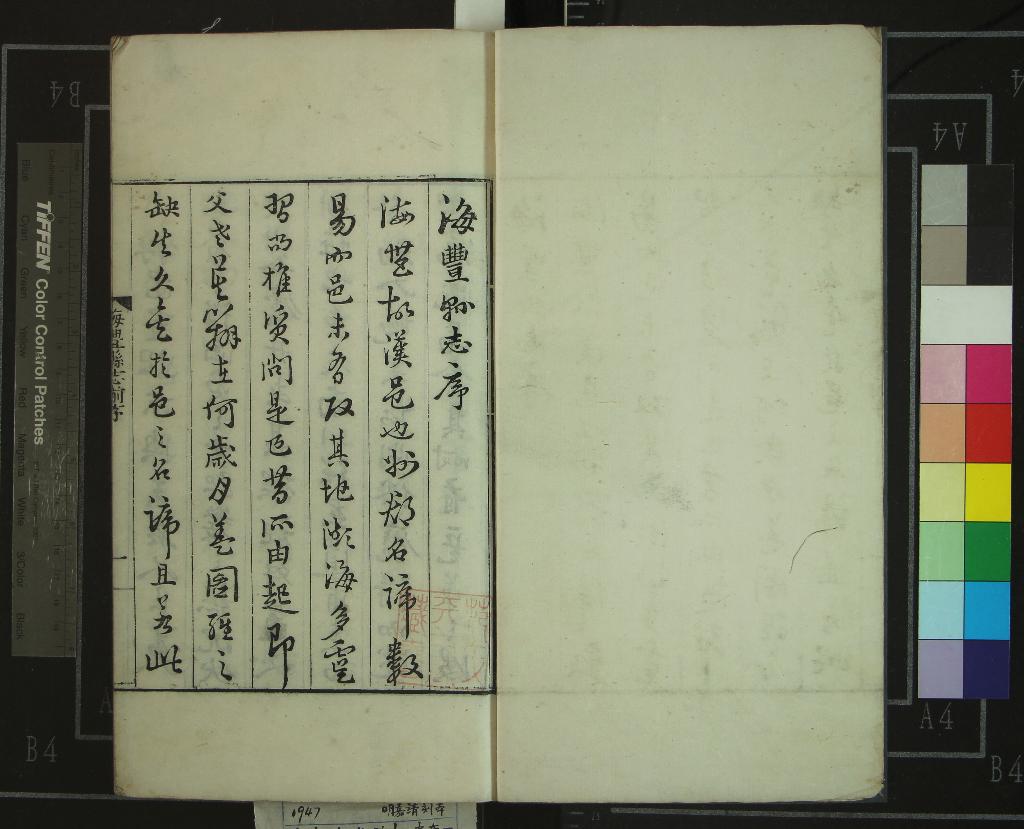 海豐縣志序
海豐故漢邑也州郡名諦數
易而邑未有改其地瀕海多虛
習尚椎質問是邑昔所由起即
父老莫辯在何歲月蓋圖經之
缺失久矣於邑之名諦且若此
海豐縣志前序
TIFFEN Color Control Patches
Blue
Cyan
Green
Yellow
Red
Magenta
White
3/Color
Black
B4
A4
A4
B4
B4
1947 明嘉靖刻本